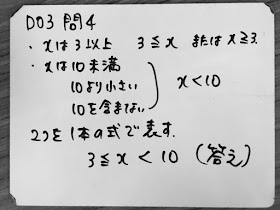 D03 問4
・xは3以上 3≦x または x≧3.
・xは10未満
10より小さい
10を含まない
x<10
2つを1本の式で表す.
3≦x<10 (答え)